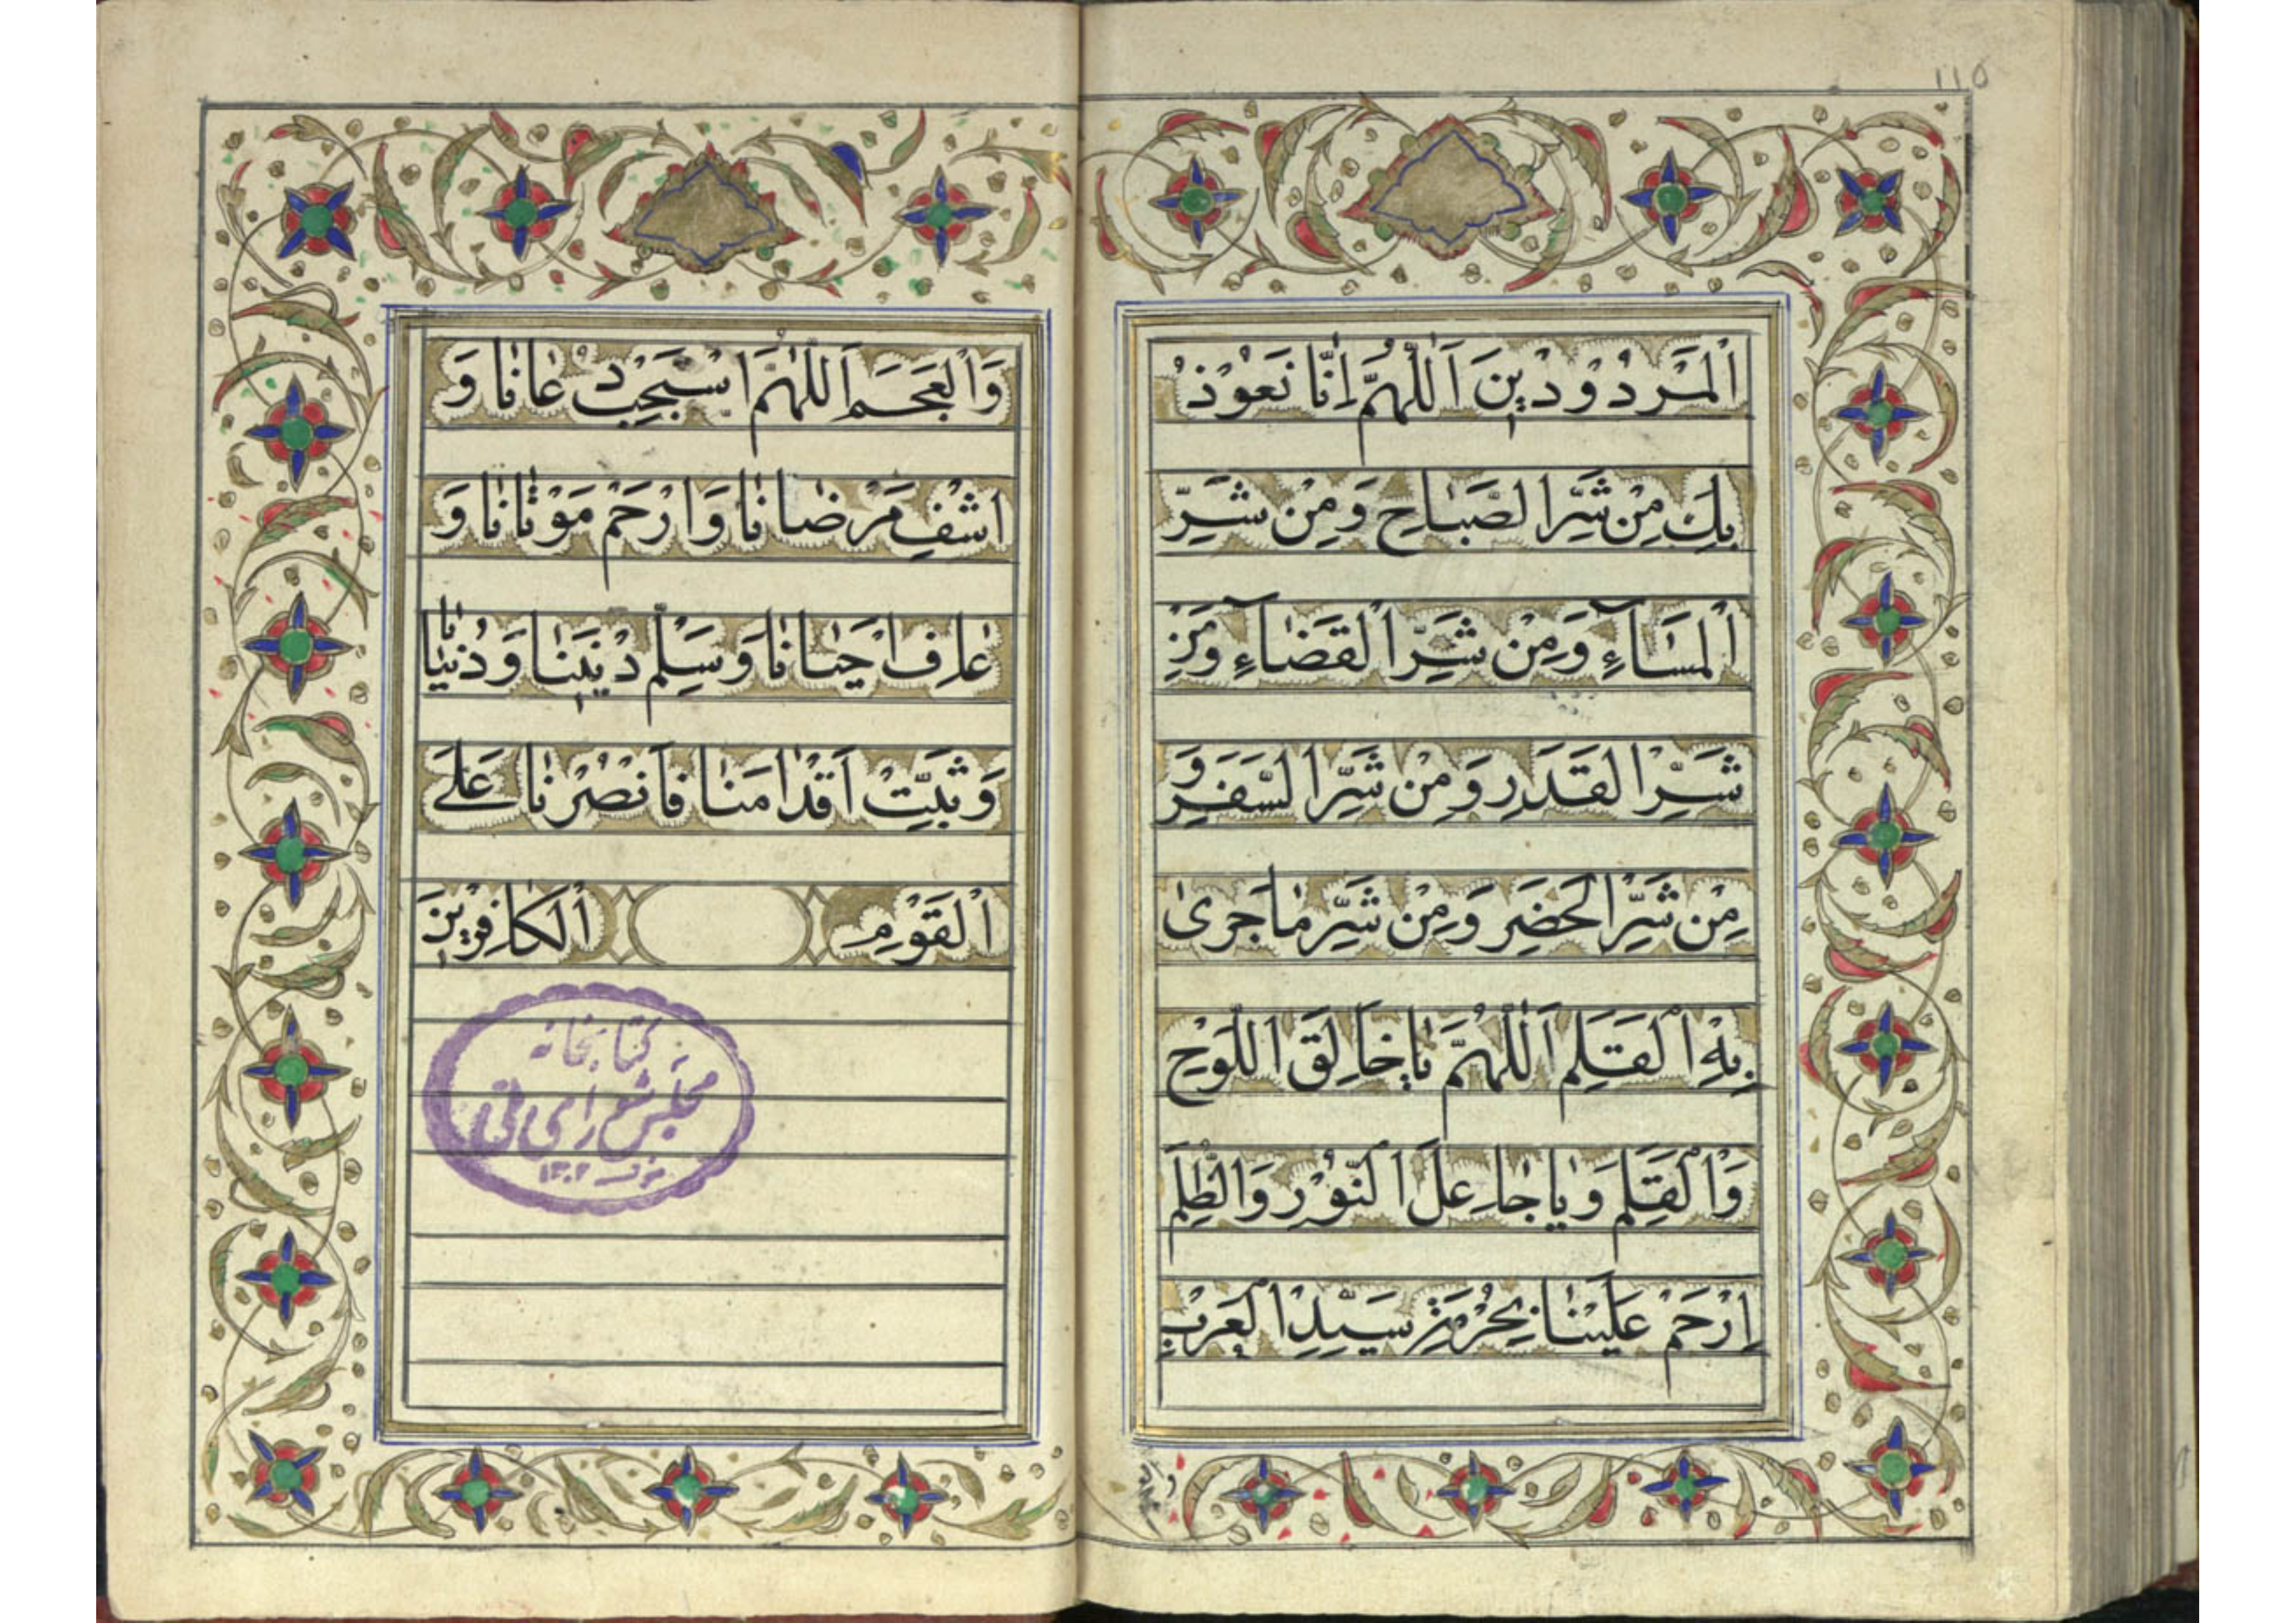 ١١٥
اَلْمَرْدُوْدِيْنَ اَللّٰهُمَّ اِنّٰا نَعُوْذُ
بِكَ مِنْ شَرِّ الصَّبٰاحِ وَمِنْ شَرِّ
الْمَسٰآءِ وَمِنْ شَرِّ الْقَضٰآءِ وَمِنْ
شَرِّ الْقَدَرِ وَمِنْ شَرِّ السَّفَرِ وَ
مِنْ شَرِّ الْحَضَرِ وَمِنْ شَرِّ مٰا جَرىٰ
بِهِ الْقَلَمِ اَللّٰهُمَّ يٰا خٰالِقَ اللَّوْحِ
وَالْقَلَمِ وَيٰا جٰاعِلَ النُّوْرِ وَالظُّلَمِ
اِرْحَمْ عَلَيْنٰا بِحُرْمَةِ سَيِّدِ الْعَرَبِ
وَالْعَجَمِ
وَالْعَجَمِ اَللّٰهُمَّ اسْتَجِبْ دُعٰانٰا وَ
اشْفِ مَرْضٰانٰا وَارْحَمْ مَوْتٰانٰا وَ
عٰافِ اَحْيٰانٰا وَسَلِّمْ دِيْنَنٰا وَدُنْيٰانٰا
وَثَبِّتْ اَقْدٰامَنٰا فَانْصُرْنٰا عَلَى
الْقَوْمِ الْكٰافِرِيْنَ
كتابخانه
مجلس شوراى ملى
نمره ١٣٠٢